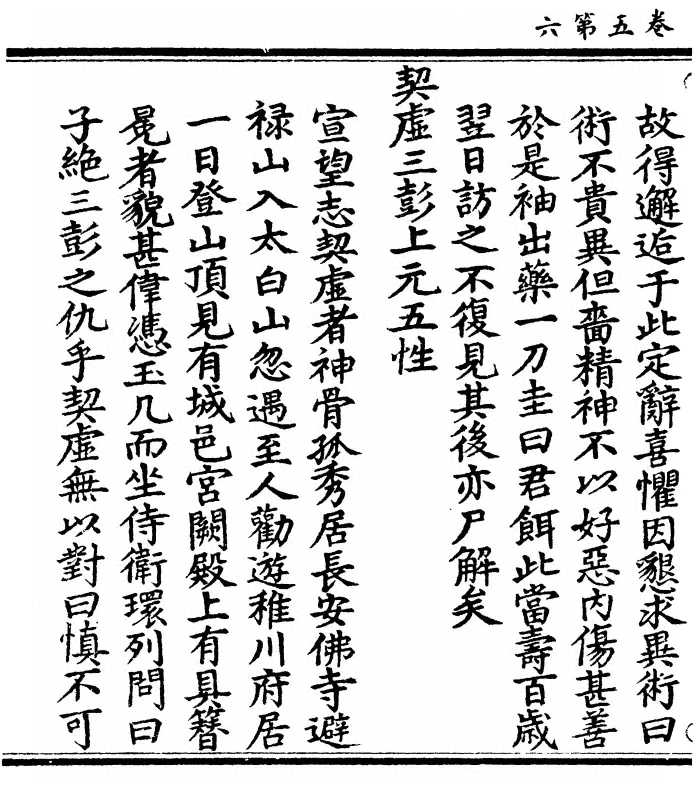 卷五第六
故得邂逅于此定辭喜懼因懇求異術曰
術不貴異但嗇精神不以好惡內傷甚善
於是袖出藥一刀圭曰君餌此當壽百歲
翌日訪之不復見其後亦尸解矣
契虛三彭上元五性
宣望志契虛者神骨孤秀居長安佛寺避
禄山入太白山忽遇至人勸遊稚川府居
一日登山頂見有城邑宮闕殿上有具簪
冕者貌甚偉憑玉几而坐侍衛環列問曰
子絶三彭之仇乎契虛無以對曰慎不可